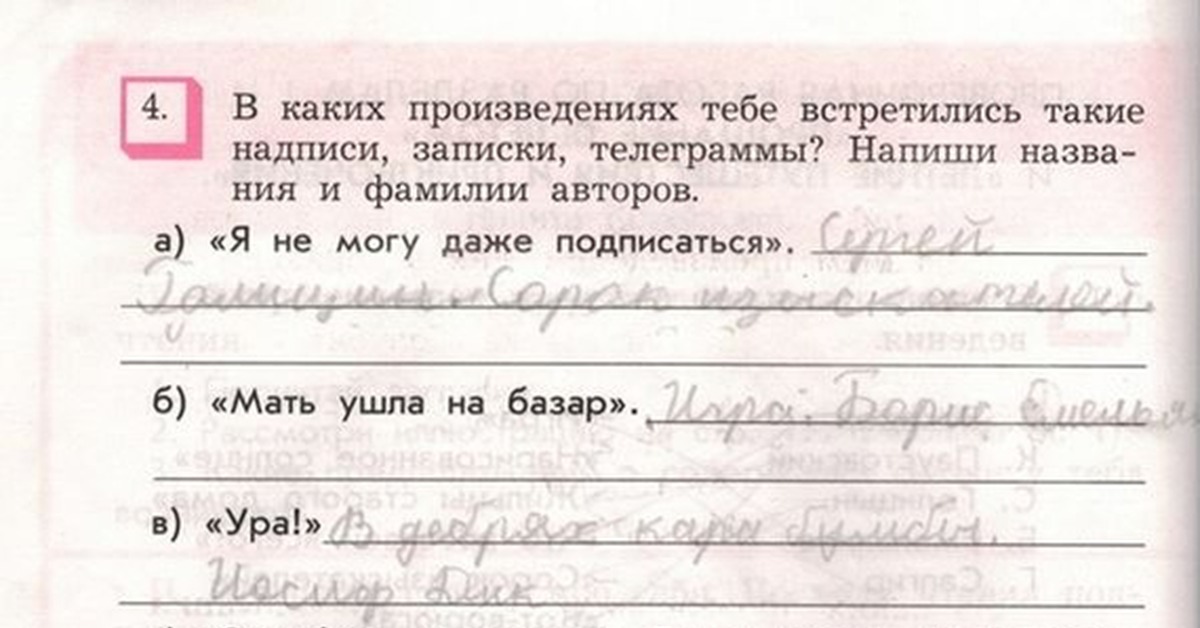 4. В каких произведениях тебе встретились такие
надписи, записки, телеграммы? Напиши назва-
ния и фамилии авторов.
а) «Я не могу даже подписаться». Сергей
Голицын. Сорок изыскателей.
б) «Мать ушла на базар». Игра. Борис Емельян
в) «Ура!» В дебрях кара бумбы.
Иосиф Дик